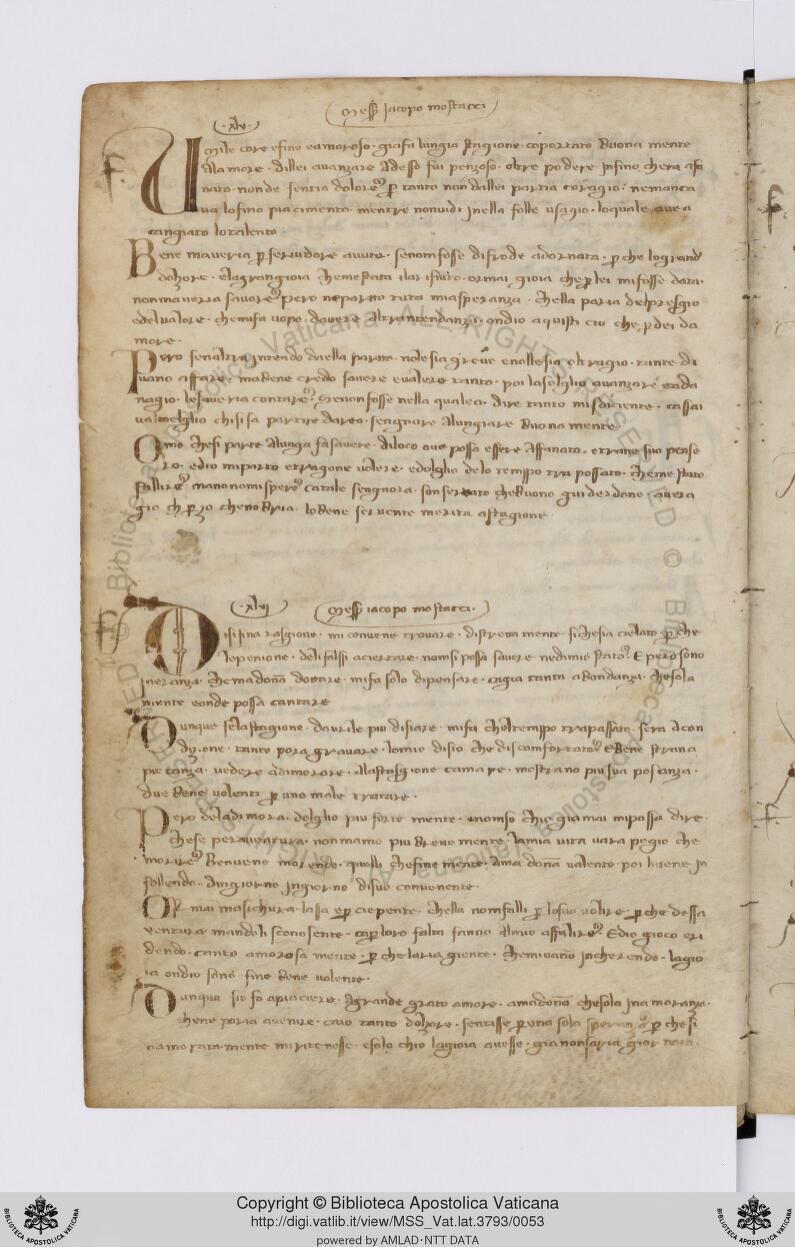 Mess Jacopo mostacci
.xlv.
Umile core efino eamoroso. giafa lungia stagione. coportato Buona mente
Alamore. dillei avanzare Adesso fui penzoso. oltre podere Infino chera afa
nato. nonde sentia dolore. p tanto non dallei partia coragio. nemanca
va lofino piacimento. mentre nonvidi jnella folle usagio. loquale avea
cangiato lotalento.
Bene maveria p servidore avuto. senomfosse difrode adornata. p che lograndè
dolzore. elagrangioia chemestata. ormai gioia chep lei mifosse data.
nonmaverria savore. pero neparto tuta miasperanza. chella paria delpresgio
edelvalore. chemifa uopo davere Altrantendanza. ondio aquisti cio che pdei da
more.
Pero senaltra intendo edaella parto. nolesia greve enollesia oltragio. tante di
vano affare. maBene credo savere evalere tanto. poi lasolglio avanzare cada
nagio. lesaveria contare. senonfosse nella qualeo. dire tanto misdiciente. cassai
valmelglio chisi sa partire dareo. sengnore Alungiare Buona mente.
Omo chesi parte Alunga fasavere. diloco ove possa essere Affanato. etrane suo pense
ro. edio miparto etragone volere. edolglio delo tempo trapassato. cheme stato
fallire. manonomispero catale sengnora. son servato cheBuono guiderdone. avera
gio ch pzo chenoBria. loBene servente merita astagione
.xlvj.
Mess iacopo mostacci.
Disi fina rasgione. mi convene trovare. distretta mente sichesia cielato. p che
lopenione. deli falssi aciertare. nomsi possa savere nedimie stato. E pero sono
jneranza. chemadona dottare. mifa solo dipensare. cagia tanta aBondanza. chesola
mente eonde possa cantare
Dunque selastagione. davrile piu disiare. mifa cheltemppo trapassato. sera Acon
dizione. tanto pora gravare. lomio disio chediscomfortato. EBene strana
pietanza. vedere adimorare. Alastasgione camare. mostrano piusua possanza.
due Bene volenti p uno male trattare.
Pero deladimora. dolglio piu forte mente. nomso chio giamai mipossa dire.
chese peravventura. nonmamo piu Breve mente. lamia vita vara pegio che
morire. Benvene morendo. quelli chefine mente. Ama dona valente. poi livene jn
follendo. dingiorno jngiorno disuo convenente.
Or mai masichura. lassa e p ciepente. chella nomfalli p losuo volire. p che dessa
ventura. mandoli sconosente. cap loro falta fanno Altrui affalire. Edio gioco eri
dendo. canto amorosa mente. p che laria giente. chemivano incherendo. lagio
ia ondio sono fine Bene volente.
Dunqua sio fo apiaciere. Agrande grato amore. amadona chesola jnamoranza.
chene poria avenire. caio tanto dolzore. sentisse p una sola speranza p che si
namorata mente miritenesse. esolo chio lagioia avesse. gia nonsaria gior nata.
Copyright © Biblioteca Apostolica Vaticana
http://digi.vatlib.it/view/MSS_Vat.lat.3793/0053
powered by AMLAD·NTT DATA
BIBLIOTECA APOSTOLICA VATICANA
BIBLIOTECA APOSTOLICA VATICANA